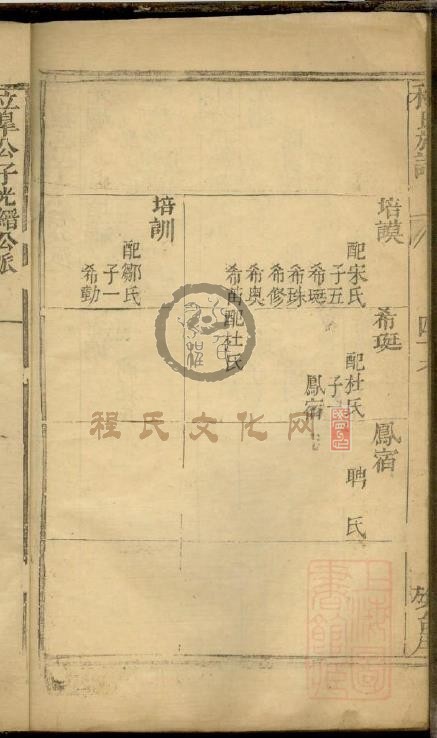 程氏族譜
培謨
配宋氏
子五
希珽
希珠
希修
希奥
希萬配杜氏
希珽
配杜氏
子一
鳳宿
鳳宿
聘 氏
培訓
配鄒氏
子一
希勤
立阜公子光縉公派
程氏文化网
上海圖書館藏